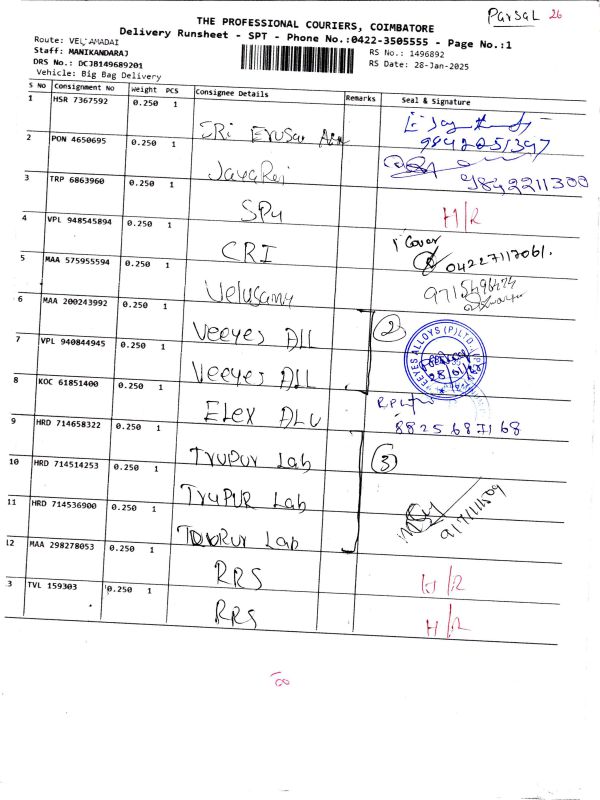 Parsal 26
THE PROFESSIONAL COURIERS, COIMBATORE
Delivery Runsheet - SPT - Phone No.:0422-3505555 - Page No.:1
Route: VEL AMADAI
RS No.: 1496892
Staff: MANIKANDARAJ
RS Date: 28-Jan-2025
DRS No.: DCJB149689201
Vehicle: Big Bag Delivery
S No Consignment No Weight PCS Consignee Details Remarks Seal & Signature
1 HSR 7367592 0.250 1 SRi Erusar
2 PON 4650695 0.250 1 JayaRej
9842211300
3 TRP 6863960 0.250 1 SPy H/R
4 VPL 948545894 0.250 1 CRI 1 Cover
04227117061.
5 MAA 575955594 0.250 1 Velusamy
6 MAA 200243992 0.250 1 Veeyes All 2
7 VPL 940844945 0.250 1 Veeyes All
8 KOC 61851400 0.250 1 Elex ALU
8825687168
9 HRD 714658322 0.250 1 Trupur Lab 3
10 HRD 714514253 0.250 1 TruPUR Lab
11 HRD 714536900 0.250 1 Lab
12 MAA 298278053 0.250 1 RRS H/R
13 TVL 159303 0.250 1 RRS H/R